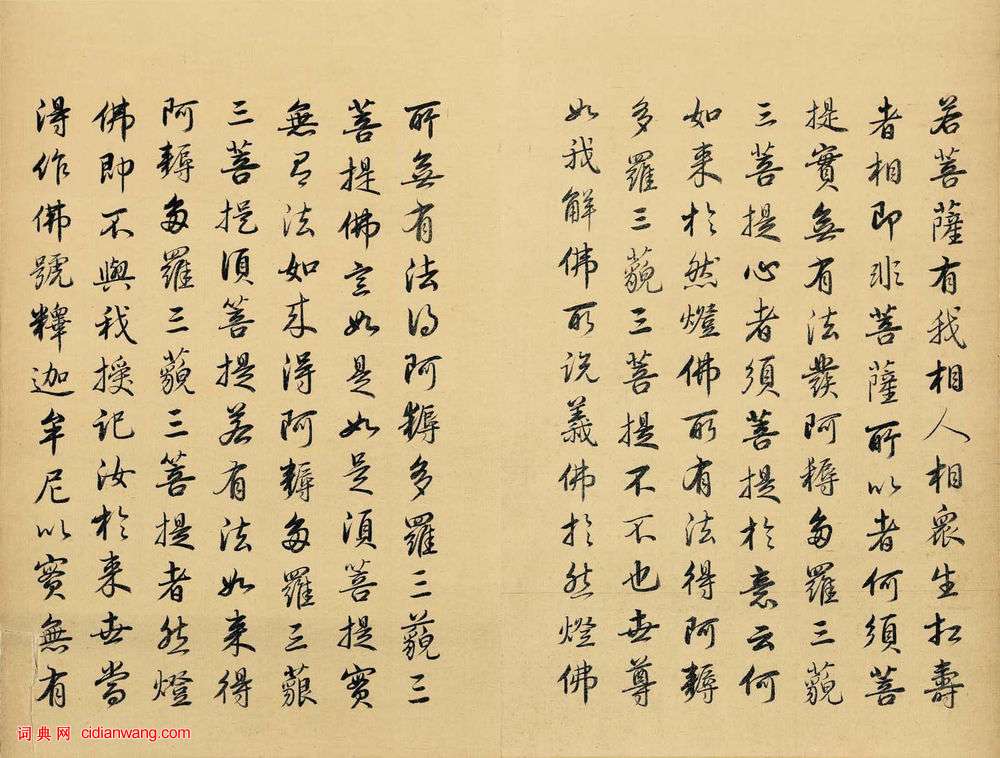 若菩薩有我相人相眾生相壽
者相即非菩薩所以者何須菩
提實無有法發阿耨多羅三藐
三菩提心者須菩提於意云何
如來於然燈佛所有法得阿耨
多羅三藐三菩提不不也世尊
如我解佛所說義佛於然燈佛
所無有法得阿耨多羅三藐三
菩提佛言如是如是須菩提實
無有法如來得阿耨多羅三藐
三菩提須菩提若有法如來得
阿耨多羅三藐三菩提者然燈
佛即不與我授記汝於來世當
得作佛號釋迦牟尼以實無有
词典网 cidianwang.com